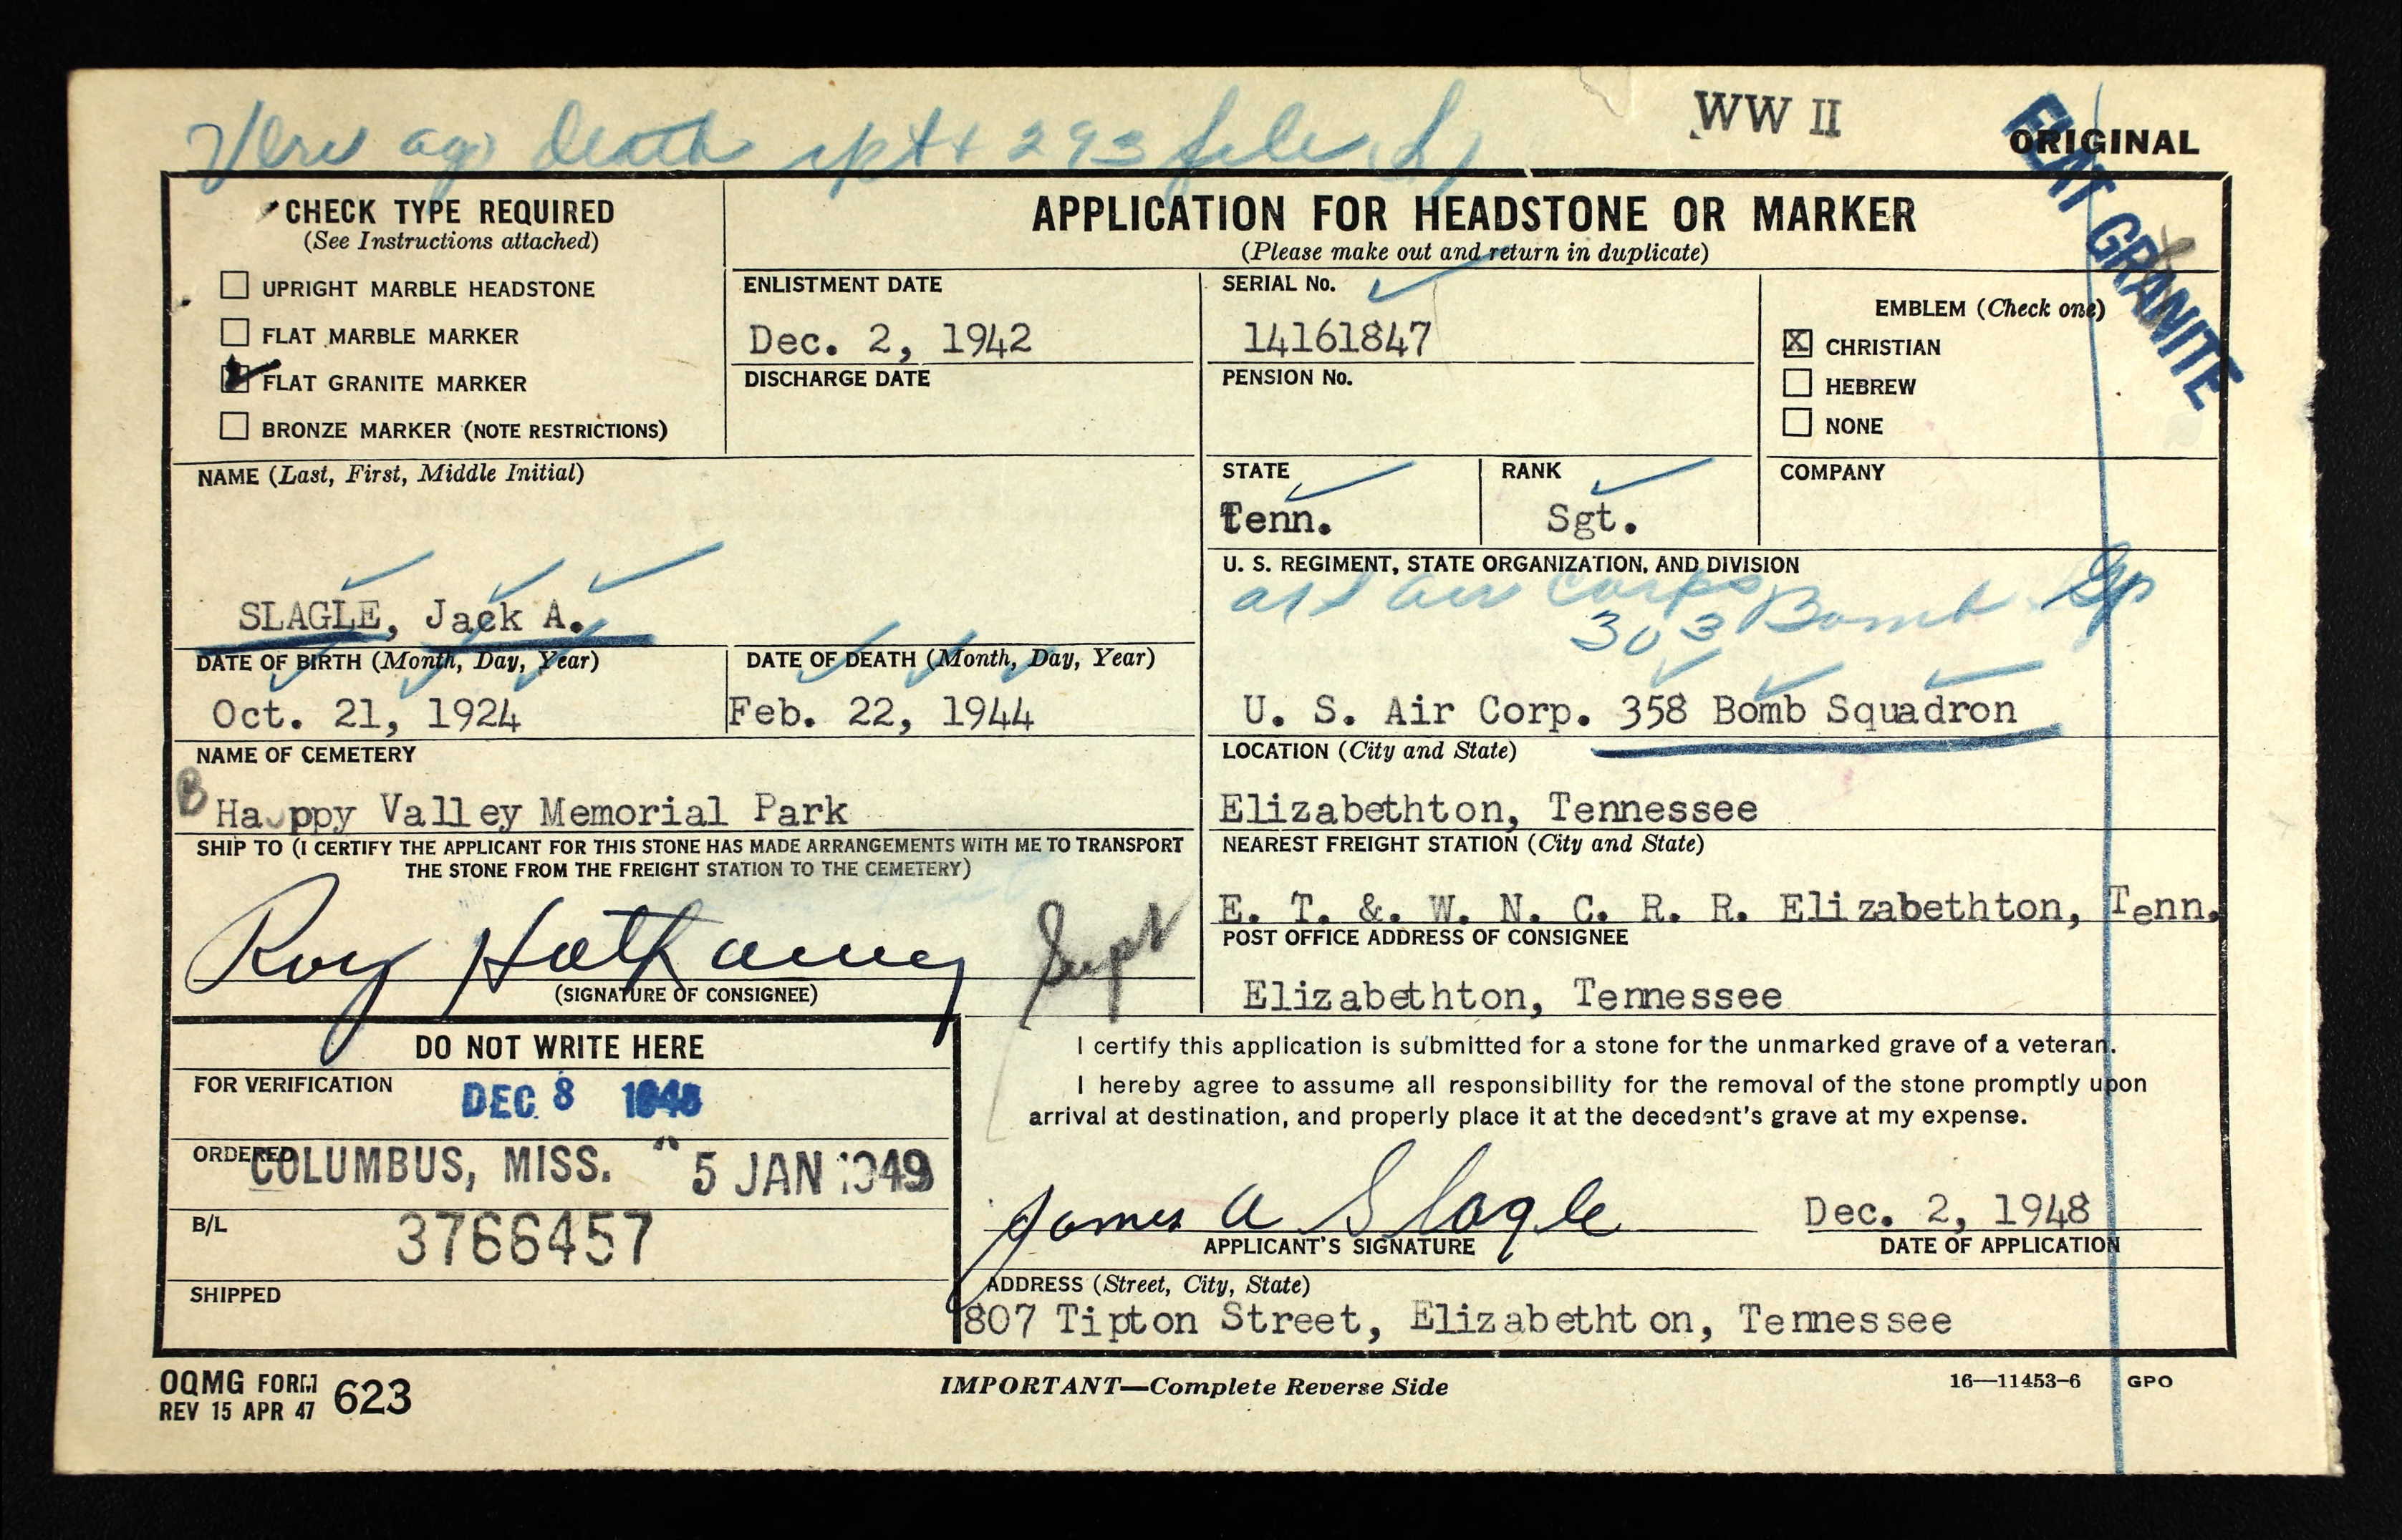 death rpt + 293 file
WW II
ORIGINAL
FLAT GRANITE
CHECK TYPE REQUIRED
(See Instructions attached)
UPRIGHT MARBLE HEADSTONE
FLAT MARBLE MARKER
FLAT GRANITE MARKER
BRONZE MARKER (NOTE RESTRICTIONS)
APPLICATION FOR HEADSTONE OR MARKER
(Please make out and return in duplicate)
ENLISTMENT DATE
Dec. 2, 1942
DISCHARGE DATE
SERIAL No.
14161847
PENSION No.
EMBLEM (Check one)
X CHRISTIAN
HEBREW
NONE
NAME (Last, First, Middle Initial)
SLAGLE, Jack A.
STATE
Tenn.
RANK
Sgt.
COMPANY
U. S. REGIMENT, STATE ORGANIZATION, AND DIVISION
Air Corps
303 Bomb Gp
U. S. Air Corp. 358 Bomb Squadron
DATE OF BIRTH (Month, Day, Year)
Oct. 21, 1924
DATE OF DEATH (Month, Day, Year)
Feb. 22, 1944
NAME OF CEMETERY
B Happy Valley Memorial Park
LOCATION (City and State)
Elizabethton, Tennessee
SHIP TO (I CERTIFY THE APPLICANT FOR THIS STONE HAS MADE ARRANGEMENTS WITH ME TO TRANSPORT
THE STONE FROM THE FREIGHT STATION TO THE CEMETERY)
Roy Hathaway Supt
(SIGNATURE OF CONSIGNEE)
NEAREST FREIGHT STATION (City and State)
E. T. &. W. N. C. R. R. Elizabethton, Tenn.
POST OFFICE ADDRESS OF CONSIGNEE
Elizabethton, Tennessee
DO NOT WRITE HERE
FOR VERIFICATION
DEC 8 1948
ORDERED
COLUMBUS, MISS. 5 JAN 1949
B/L
3766457
SHIPPED
I certify this application is submitted for a stone for the unmarked grave of a veteran.
I hereby agree to assume all responsibility for the removal of the stone promptly upon
arrival at destination, and properly place it at the decedent's grave at my expense.
James A Slagle
APPLICANT'S SIGNATURE
Dec. 2, 1948
DATE OF APPLICATION
ADDRESS (Street, City, State)
807 Tipton Street, Elizabethton, Tennessee
OQMG FORM 623
REV 15 APR 47
IMPORTANT—Complete Reverse Side
16—11453-6 GPO